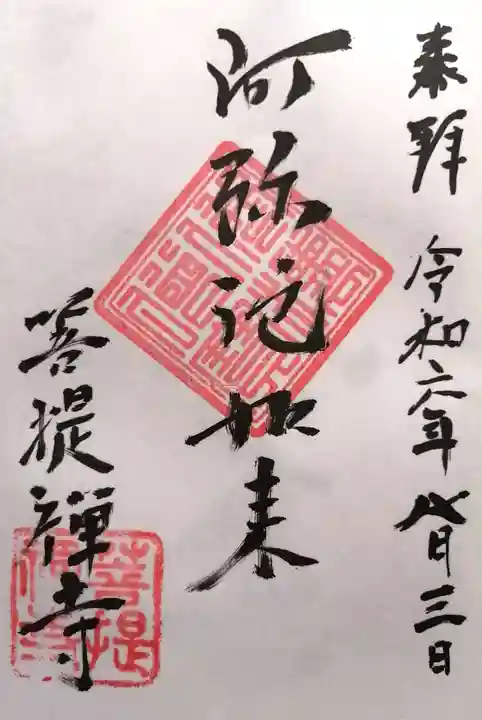 奉拜 令和六年 八月三日
阿弥陀如来
菩提禅寺